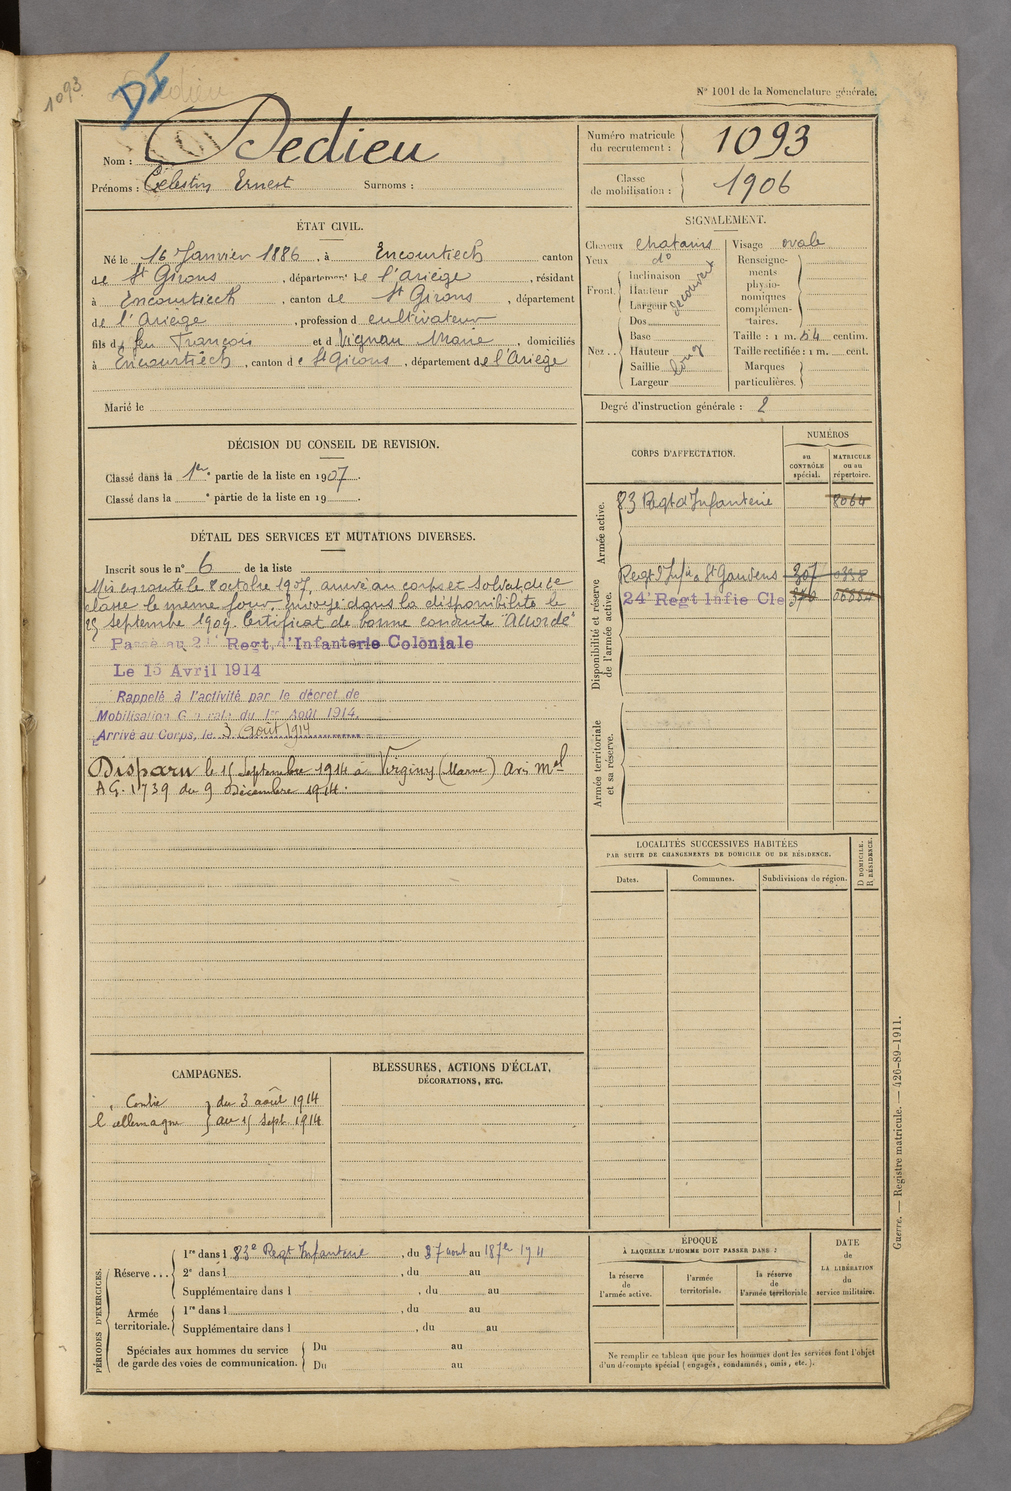 1093
DF
N° 1001 de la Nomenclature générale.
Nom : Dedieu
Prénoms : Célestin Ernest Surnoms :
Numéro matricule du recrutement : 1093
Classe de mobilisation : 1906
ÉTAT CIVIL.
Né le 16 Janvier 1886, à Encourtiech canton
de St Girons, département de l'Ariège, résidant
à Encourtiech, canton de St Girons, département
de l'Ariège, profession d cultivateur
fils de feu François et d Vignau Marie, domiciliés
à Encourtiech, canton de St Girons, département de l'Ariège
Marié le
SIGNALEMENT.
Cheveux chatains
Yeux do
Front. Inclinaison
Hauteur
Largeur
découvert
Nez .. Dos
Base
Hauteur
Saillie
Largeur
long
Visage ovale
Renseigne-
ments
physio-
nomiques
complémen-
taires.
Taille : 1 m. 54 centim.
Taille rectifiée : 1 m. cent.
Marques
particulières.
Degré d'instruction générale : 2
DÉCISION DU CONSEIL DE REVISION.
Classé dans la 1re partie de la liste en 1907.
Classé dans la e partie de la liste en 19
DÉTAIL DES SERVICES ET MUTATIONS DIVERSES.
Inscrit sous le n° 6 de la liste
Mis en route le 8 octobre 1907, arrivé au corps et soldat de 2e
classe le même jour. Envoyé dans la disponibilité le
25 Septembre 1909. Certificat de bonne conduite "Accordé"
Passé au 24e Regt. d'Infanterie Coloniale
Le 15 Avril 1914
Rappelé à l'activité par le décret de
Mobilisation Générale du 1er Août 1914.
Arrivé au Corps, le 3 Août 1914
Disparu le 15 Septembre 1914 à Virginy (Marne) Avis Mel
A G. 1739 du 9 Décembre 1914.
CORPS D'AFFECTATION.
NUMÉROS
au CONTRÔLE spécial.
MATRICULE ou au répertoire.
Armée active.
83 Regt d'Infanterie 8064
Disponibilité et réserve de l'armée active.
Regt d'Infie à St Gaudens 307
24e Regt Infie Cle
Armée territoriale et sa réserve.
LOCALITÉS SUCCESSIVES HABITÉES
PAR SUITE DE CHANGEMENTS DE DOMICILE OU DE RÉSIDENCE.
Dates. Communes. Subdivisions de région. D DOMICILE. R RÉSIDENCE.
CAMPAGNES.
Contre du 3 août 1914
l'allemagne au 15 Sept. 1914
BLESSURES, ACTIONS D'ÉCLAT,
DÉCORATIONS, ETC.
PÉRIODES D'EXERCICES.
Réserve ...
1re dans l 83e Regt Infanterie, du 27 aout au 18 7bre 1911
2e dans l , du au
Supplémentaire dans l , du au
Armée territoriale.
1re dans l , du au
Supplémentaire dans l , du au
Spéciales aux hommes du service
de garde des voies de communication.
Du au
Du au
ÉPOQUE
À LAQUELLE L'HOMME DOIT PASSER DANS :
la réserve de l'armée active.
l'armée territoriale.
la réserve de l'armée territoriale
DATE de LA LIBÉRATION du service militaire.
Ne remplir ce tableau que pour les hommes dont les services font l'objet
d'un décompte spécial (engagés, condamnés, omis, etc.).
Guerre. — Registre matricule. — 426-89-1911.